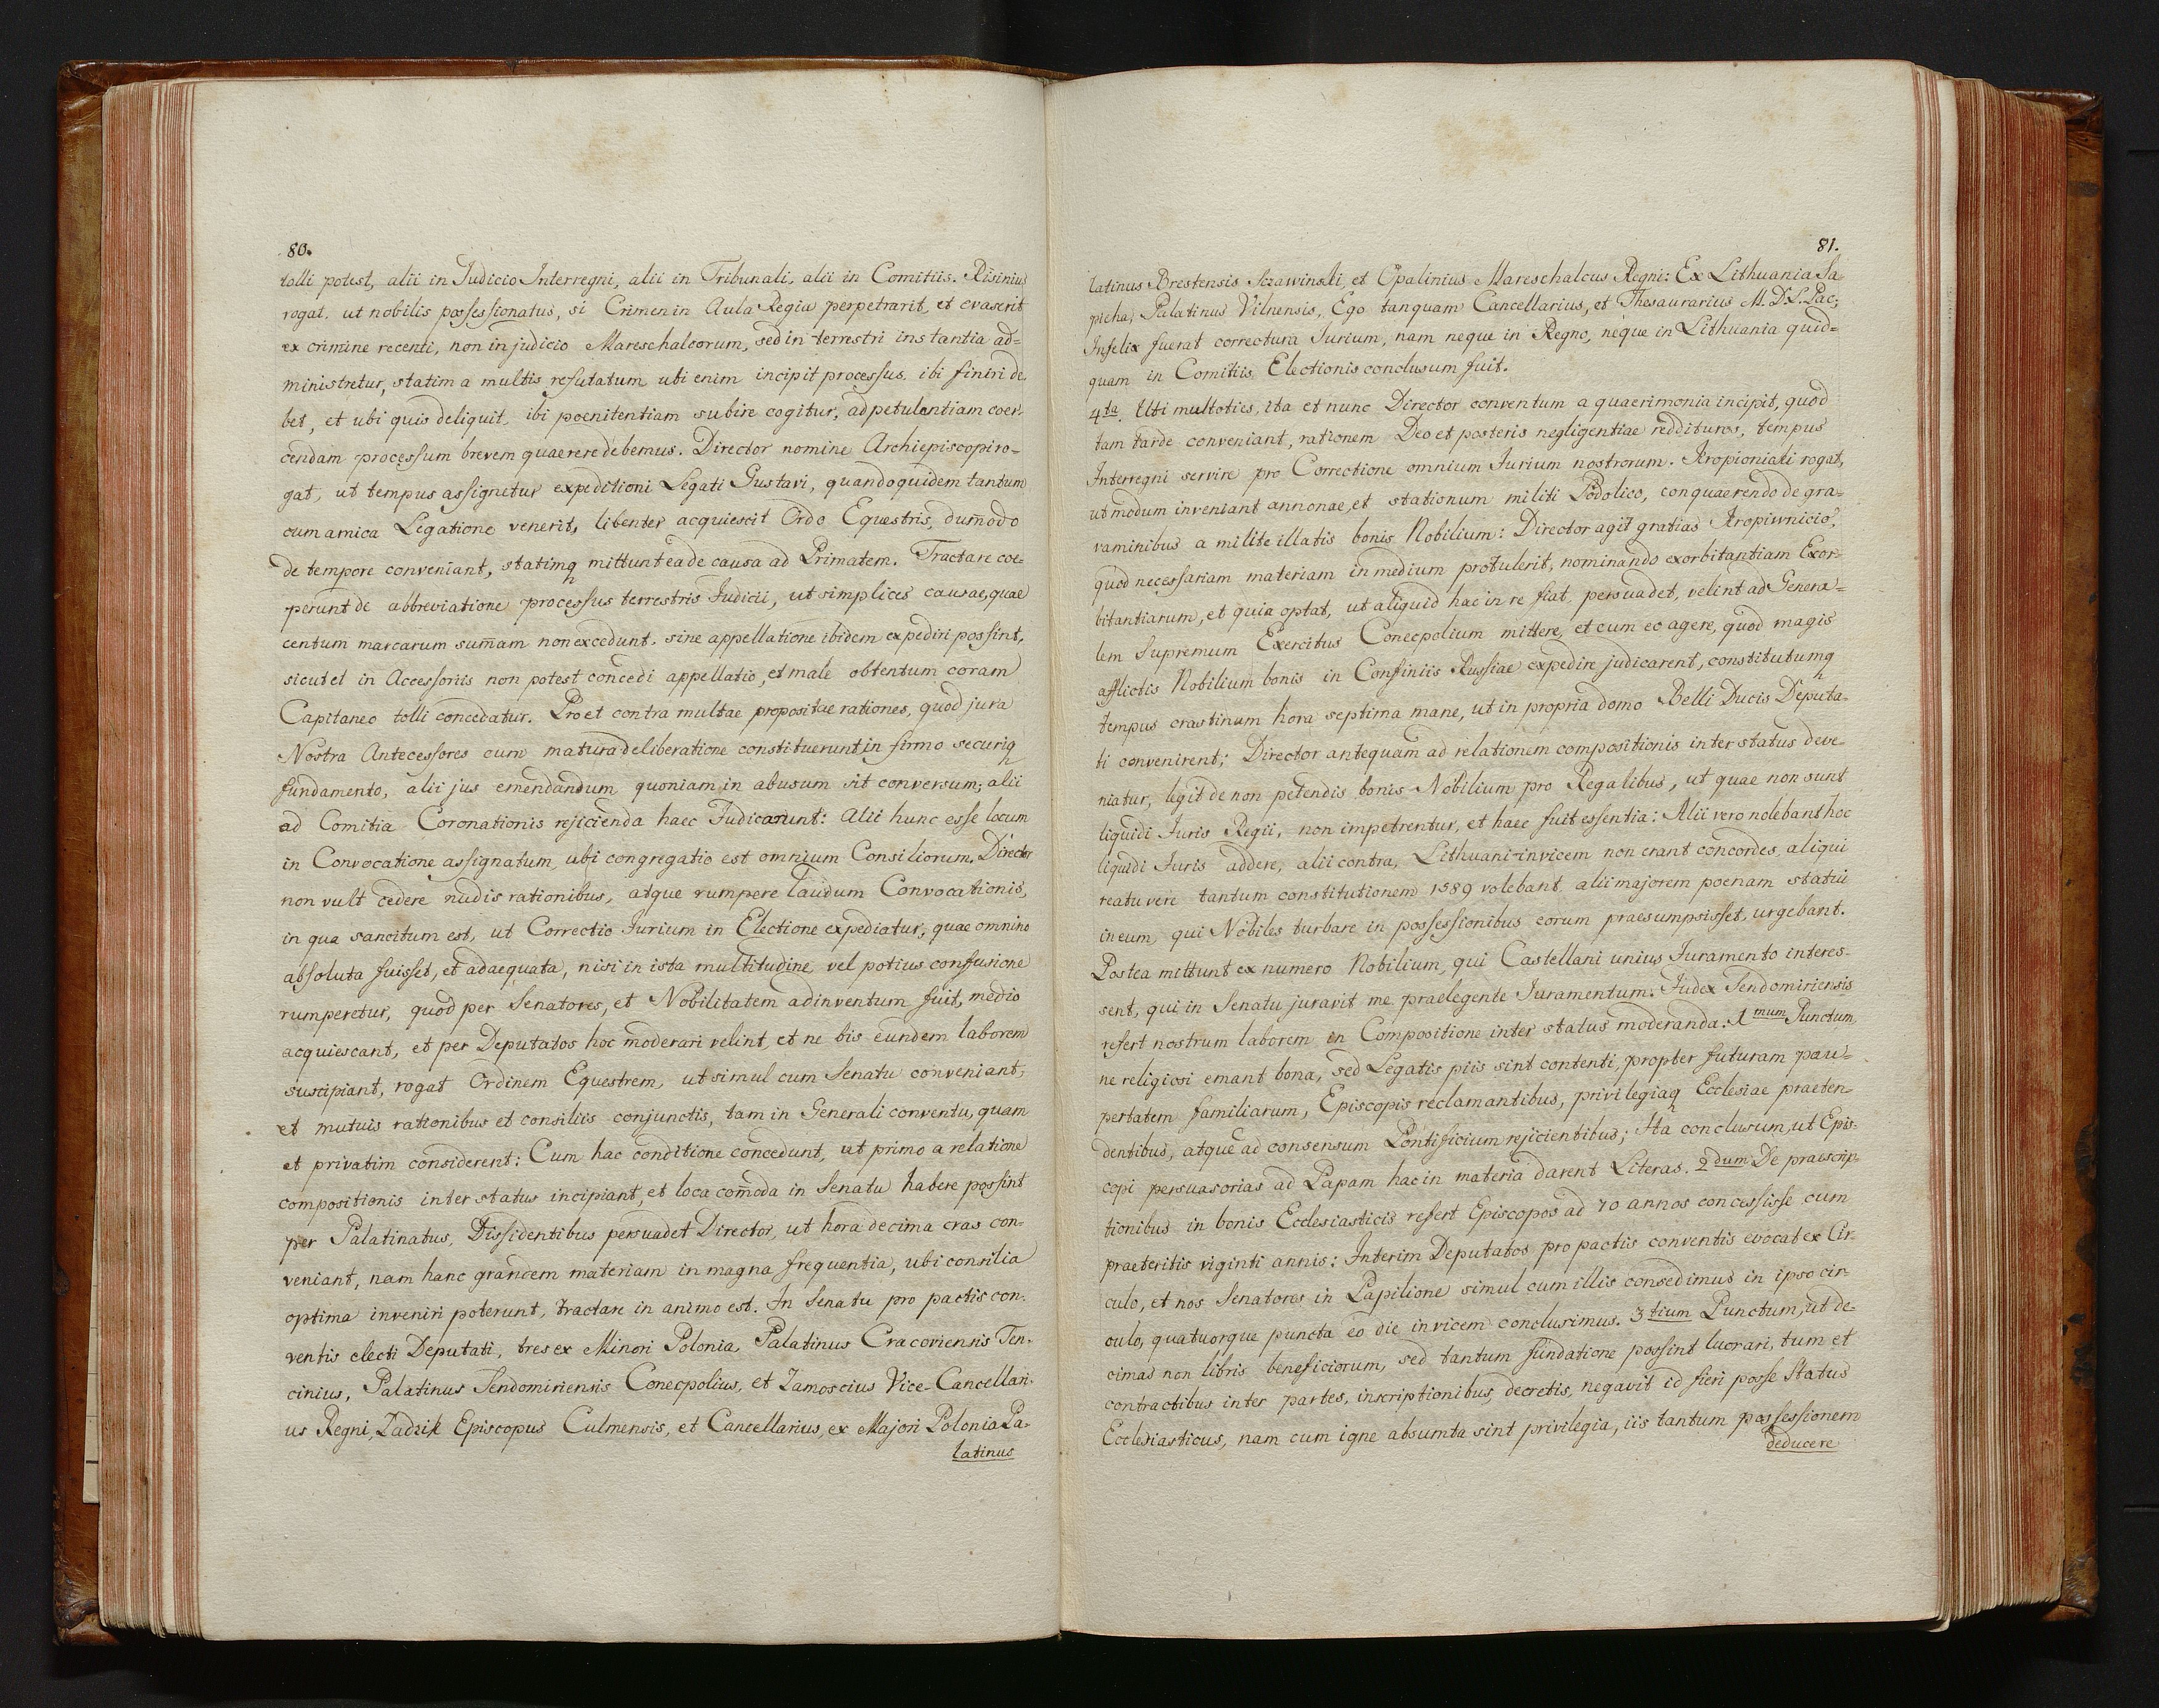 80.
tolli potest, alii in Judicio Interregni, alii in Tribunali, alii in Comitiis. Risinius
rogat, ut nobilis possessionatus, si Crimen in Aula Regia perpetrarit, et evaserit
ex crimine recenti, non in judicio Mareschalcorum, sed in terrestri instantia ad=
ministretur, statim a multis refutatum, ubi enim incipit processus, ibi finiri de
bet, et ubi quis deliquit, ibi poenitentiam subire cogitur, ad petulantiam coer=
cendam processum brevem quaerere debemus. Director nomine Archiepiscopi ro=
gat, ut tempus assignetur expeditioni Legati Gustavi, quandoquidem tantum
cum amica Legatione venerit, libenter acquiescit Ordo Equestris, dum̄odo
de tempore conveniant, statimq mittunt ea de causa ad Primatem. Tractare coe=
perunt de abbreviatione processus terrestris Judicii, ut simplices causae, quae
centum marcarum sum̄am non excedunt, sine appellatione ibidem expediri possint,
sicut et in Accessoriis non potest concedi appellatio, et male obtentum coram
Capitaneo tolli concedatur. Pro et contra multae propositae rationes, quod jura
Nostra Antecessores cum matura deliberatione constituerunt, in firmo securiq
fundamento, alii jus emendandum quoniam in abusum sit conversum; alii
ad Comitia Coronationis rejicienda haec Judicarunt: Alii hunc esse locum
in Convocatione assignatum, ubi congregatio est omnium Consiliorum. Director
non vult cedere nudis rationibus, atque rumpere laudum Convocationis,
in qua sancitum est, ut Correctio Jurium in Electione expediatur, quae omnino
absoluta fuisset, et adaequata, nisi in ista multitudine, vel potius confusione
rumperetur, quod per Senatores, et Nobilitatem adinventum fuit, medio
acquiescant, et per Deputatos hoc moderari velint, et ne bis eundem laborem
suscipiant, rogat Ordinem Equestrem, ut simul cum Senatu conveniant,
et mutuis rationibus et consiliis conjunctis, tam in Generali conventu, quam
et privatim considerent: Cum hac conditione concedunt, ut primo a relatione
compositionis inter status incipiant, et loca com̄oda in Senatu habere possint
per Palatinatus, Dissidentibus persuadet Director, ut hora decima cras con=
veniant, nam hanc grandem materiam in magna frequentia, ubi consilia
optima inveniri poterunt, tractare in animo est. In Senatu pro pactis con=
ventis electi Deputati, tres ex Minori Polonia, Palatinus Cracoviensis Ten=
cinius, Palatinus Sendomiriensis Conecpolius, et Zamoscius Vice-Cancellari=
us Regni, Zadzik Episcopus Culmensis, et Cancellarius, ex Majori Polonia Pa=
latinus
81.
latinus Brestensis Szawinski, et Opalinius Mareschalcus Regni: Ex Lithuania Sa
pieha, Palatinus Vilnensis, Ego tanquam Cancellarius, et Thesaurarius M. D. L. Pac;
Infelix fuerat correctura Jurium, nam neque in Regno, neque in Lithuania quid=
quam in Comitiis Electionis conclusum fuit.
4ta. Uti multoties, ita et nunc Director conventum a quaerimonia incipit, quod
tam tarde conveniant, rationem Deo et posteris negligentiae reddituros, tempus
Interregni servire pro Correctione omnium Jurium nostrorum. Kropioniaki rogat,
ut modum inveniant annonae, et stationum militi Podolico, conquaerendo de gra=
vaminibus a milite illatis bonis Nobilium: Director agit gratias Kropiwnicio,
quod necessariam materiam in medium protulerit, nominando exorbitantiam Exor=
bitantiarum, et quia optat, ut aliquid hac in re fiat, persuadet, velint ad Genera=
lem Supremum Exercitus Conecpolium mittere, et cum eo agere, quod magis
afflictis Nobilium bonis in Confiniis Russiae expedire judicarent, constitutumq
tempus crastinum hora septima mane, ut in propria domo Belli Ducis Deputa=
ti convenirent; Director antequam ad relationem compositionis inter status deve=
niatur, legit de non petendis bonis Nobilium pro Regalibus, ut quae non sunt
liquidi Juris Regii, non impetrentur, et haec fuit essentia: Alii vero nolebant hoc
liquidi Juris addere, alii contra, Lithuani invicem non erant concordes, aliqui
reatu vere tantum constitutionem 1589 volebant, alii majorem poenam statui
in eum, qui Nobiles turbare in possessionibus eorum praesumpsisset, urgebant.
Postea mittunt ex numero Nobilium, qui Castellani unius Juramento interes=
sent, qui in Senatu juravit me praelegente Juramentum. Judex Sendomiriensis
refert nostrum laborem in Compositione inter status moderanda. 1mum Punctum,
ne religiosi emant bona, sed Legatis piis sint contenti, propter futuram pau=
pertatem familiarum, Episcopis reclamantibus, privilegiaq Ecclesiae praeten=
dentibus, atque ad consensum Pontificium rejicientibus; Ita conclusum, ut Epis=
copi persuasorias ad Papam hac in materia darent Literas. 2dum De praescrip=
tionibus in bonis Ecclesiasticis refert Episcopos ad 70 annos concessisse cum
praeteritis viginti annis: Interim Deputatos pro pactis conventis evocat ex Cir=
culo, et nos Senatores in Papilione simul cum illis consedimus in ipso cir=
culo, quatuorque puncta eo die invicem conclusimus. 3tium Punctum, ut de=
cimas non libris beneficiorum, sed tantum fundatione possint lucrari, tum et
contractibus inter partes, inscriptionibus, decretis, negavit id fieri posse Status
Ecclesiasticus, nam cum igne absumta sint privilegia, iis tantum possessionem
deducere